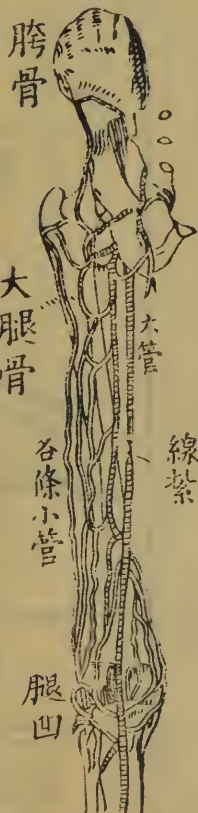 胯骨
大腿骨
大管
線紥
各條小管
腿凹